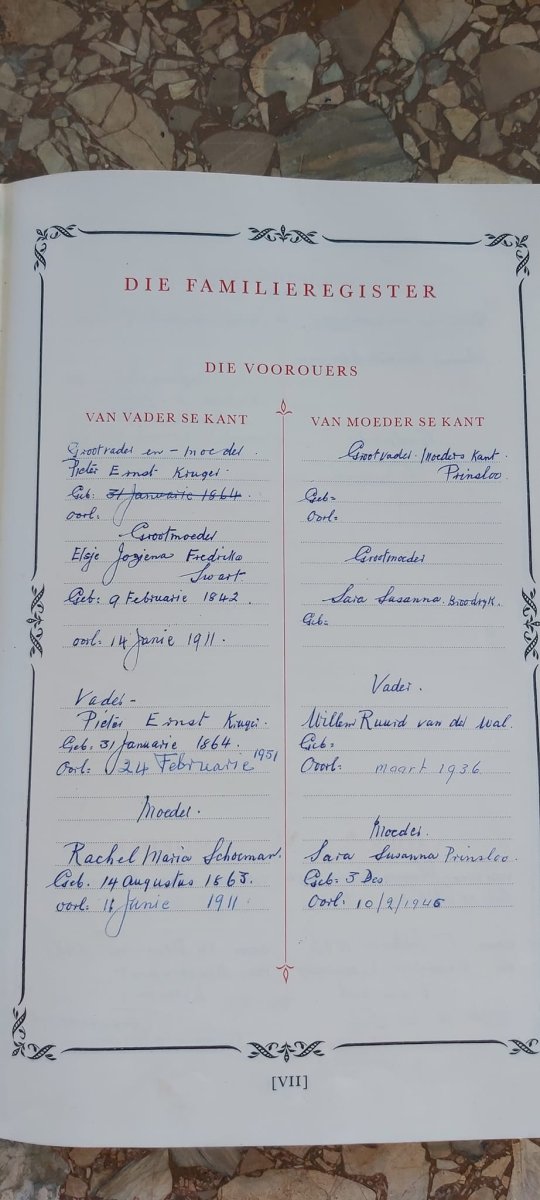 DIE FAMILIEREGISTER
DIE VOOROUERS
VAN VADER SE KANT
Grootvader en - Moeder.
Pieter Ernst Kruger.
Geb: 31 Januarie 1864.
oorl:
Grootmoeder
Elsje Joziena Fredrika
Swart
Geb: 9 Februarie 1842.
oorl: 14 Junie 1911.
Vader -
Pieter Ernst Kruger.
Geb: 31 Januarie 1864.
Oorl: 24 Februarie 1951
Moeder.
Rachel Maria Schoeman.
Geb. 14 Augustus 1863.
oorl: Junie 1911
VAN MOEDER SE KANT
Grootvader. Moeders Kant.
Prinsloo.
Geb=
Oorl=
Grootmoeder
Sara Susanna. Broodryk.
Geb=
Vader.
Willem Ruurd van der Wal.
Geb=
Oorl: maart 1936
Moeder.
Sara Susanna Prinsloo.
Geb: 3 Des
Oorl: 10/2/1946
[VII]